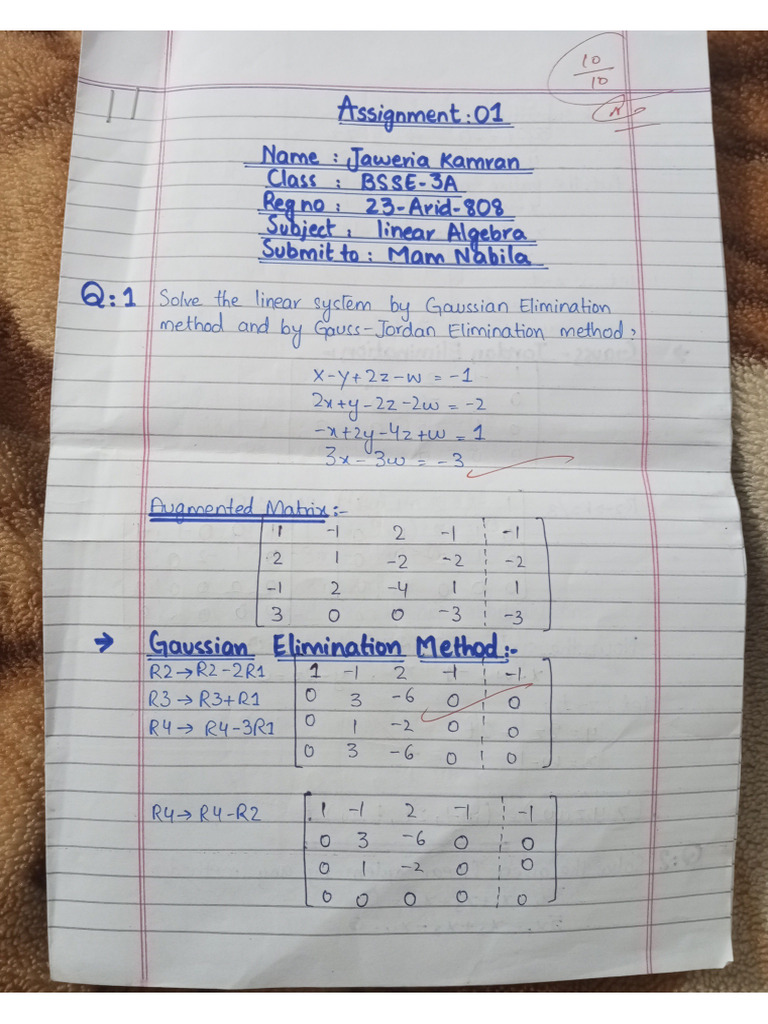 10
10
11
Assignment: 01
Name : Jaweria Kamran
Class : BSSE-3A
Reg no : 23-Arid-808
Subject : linear Algebra
Submit to : Mam Nabila
Q:1 Solve the linear system by Gaussian Elimination
method and by Gauss-Jordan Elimination method?
x-y+2z-w = -1
2x+y-2z-2w = -2
-x+2y-4z+w = 1
3x-3w = -3
Augmented Matrix:-
1 -1 2 -1 -1
2 1 -2 -2 -2
-1 2 -4 1 1
3 0 0 -3 -3
→ Gaussian Elimination Method:-
R2→R2-2R1 1 -1 2 -1 -1
R3→R3+R1 0 3 -6 0 0
R4→R4-3R1 0 1 -2 0 0
0 3 -6 0 0
R4→R4-R2 1 -1 2 -1 -1
0 3 -6 0 0
0 1 -2 0 0
0 0 0 0 0